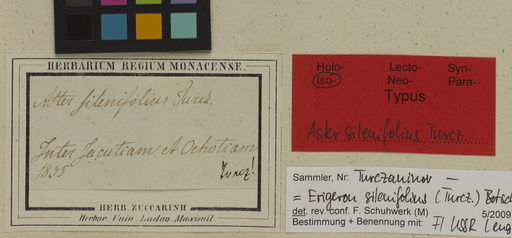 HERBARIUM REGIUM MONACENSE.
Aster silenifolius Turcz.
Inter Jacutiam et Ochotiam
1835
Turcz!
HERB. ZUCCARINII
Herbar. Univ. Ludov. Maximil.
Holo- Lecto- Syn-
Iso- Neo- Para-
Typus
Aster silenifolius Turcz
Sammler, Nr: Turczaninov —
= Erigeron silenifolius (Turcz.) Botsch
det. rev. conf. F. Schuhwerk (M) 5/2009
Bestimmung + Benennung mit: Fl USSR (eng